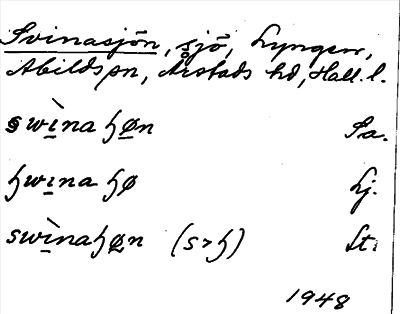 Svinasjön, sjö, Lyngsen,
Abilds sn, Årstads hd, Hall. l.
swì̠na ɧø̠n Sa.
ɧwi̠na ɧø Lj.
swì̠naɧø̠n (s>ɧ) St.
1948